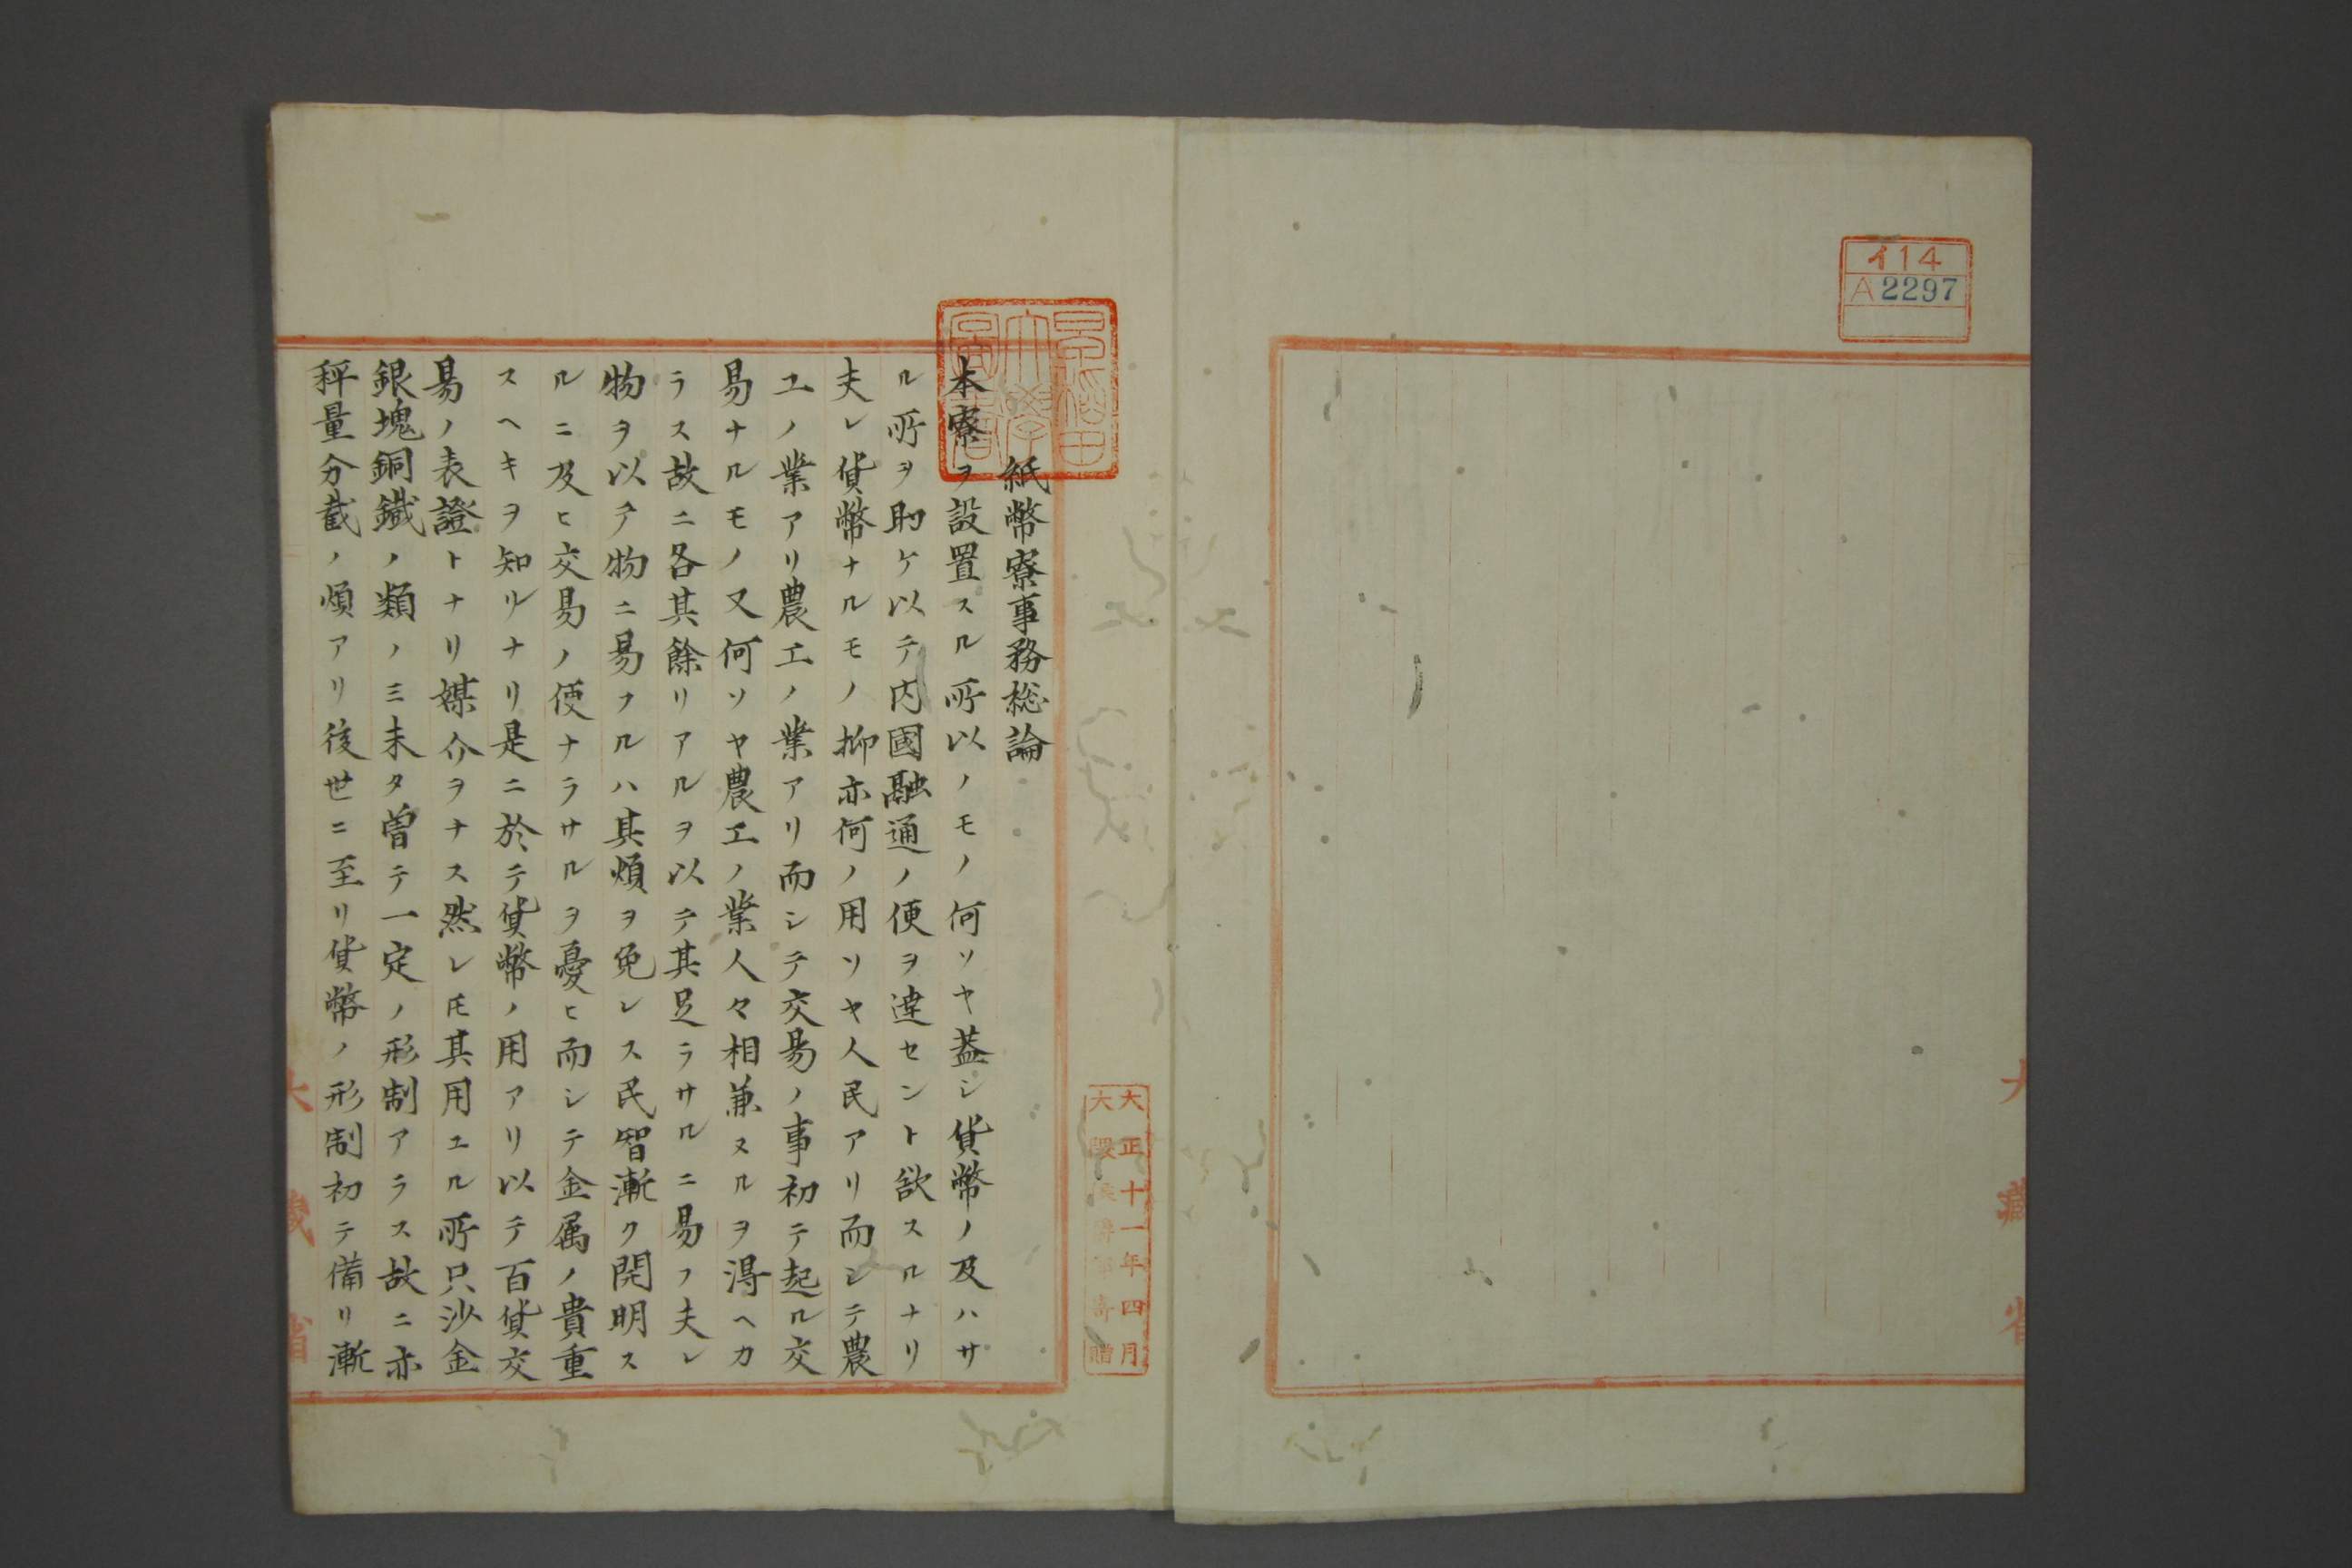 イ14
A2297
大藏省
早稲田大學圖書
大正十一年四月
大隈侯爵家寄贈
紙幣寮事務総論
本寮ヲ設置スル所以ノモノ何ソヤ蓋シ貨幣ノ及ハサ
ル所ヲ助ケ以テ内國融通ノ便ヲ達セント欲スルナリ
夫レ貨幣ナルモノ抑亦何ノ用ソヤ人民アリ而シテ農
工ノ業アリ農工ノ業アリ而シテ交易ノ事初テ起ル交
易ナルモノ又何ソヤ農工ノ業人々相兼ヌルヲ得ヘカ
ラス故ニ各其餘リアルヲ以テ其足ラサルニ易フ夫レ
物ヲ以テ物ニ易フルハ其煩ヲ免レス民智漸ク開明ス
ルニ及ヒ交易ノ便ナラサルヲ憂ヒ而シテ金属ノ貴重
スヘキヲ知リナリ是ニ於テ貨幣ノ用アリ以テ百貨交
易ノ表證トナリ媒介ヲナス然レ𪜈其用ユル所只沙金
銀塊銅鐡ノ類ノミ未タ曽テ一定ノ形制アラス故ニ亦
秤量分截ノ煩アリ後世ニ至リ貨幣ノ形制初テ備リ漸
大藏省